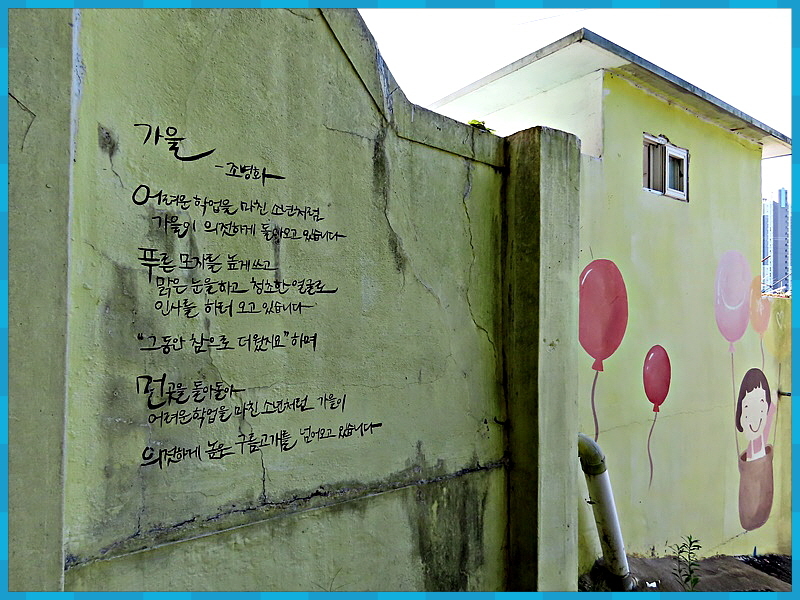 가을
- 조병화
어려운 학업을 마친 소년처럼
가을이 의젓하게 돌아오고 있습니다
푸른 모자를 높게 쓰고
맑은 눈을 하고 청초한 얼굴로
인사를 하러 오고 있습니다
"그동안 참으로 더웠지요" 하며
먼 곳을 돌아돌아
어려운 학업을 마친 소년처럼 가을이
의젓하게 높은 구름고개를 넘어오고 있습니다